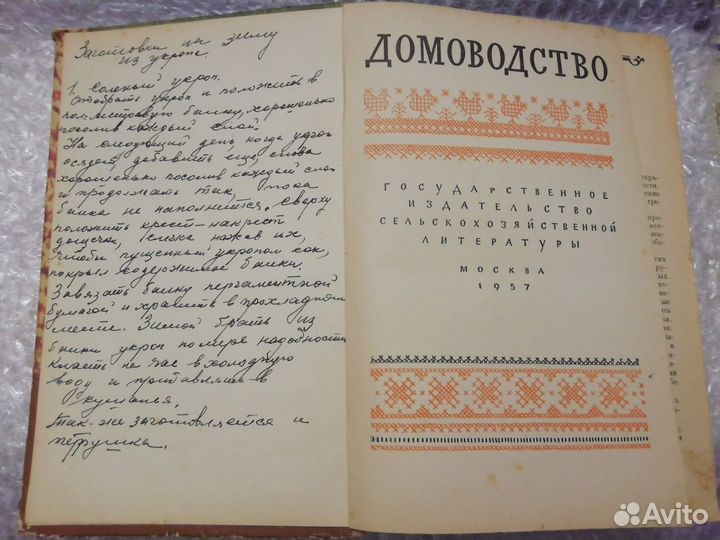 Заготовки на зиму
из укропа.
1. Соленый укроп.
Отобрать укроп и положить в
пол-литровую банку, хорошенько
посолив каждый слой.
На следующий день, когда укроп
осядет, добавить еще, снова
хорошенько посолив каждый слой
и продолжать так, пока
банка не наполнится. Сверху
положить крест-накрест
дощечки, слегка нажав их,
чтобы пущенный укропом сок,
покрыл содержимое банки.
Завязать банку пергаментной
бумагой и хранить в прохладном
месте. Зимой брать из
банки укроп по мере надобности
класть на час в холодную
воду и прибавлять в
кушанья,
так-же заготовляется и
петрушка.
ДОМОВОДСТВО
ГОСУДАРСТВЕННОЕ
ИЗДАТЕЛЬСТВО
СЕЛЬСКОХОЗЯЙСТВЕННОЙ
ЛИТЕРАТУРЫ
МОСКВА
1957
Avito